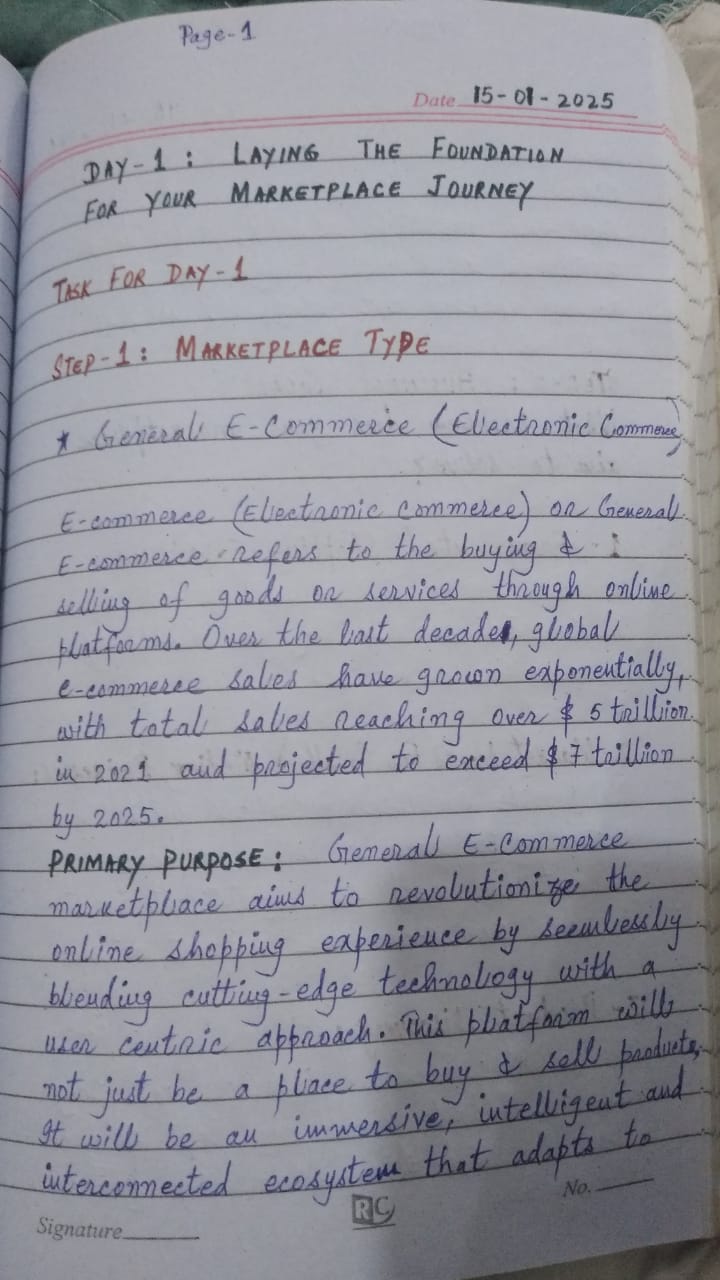 Page-1
Date 15-01-2025
DAY-1: LAYING THE FOUNDATION
FOR YOUR MARKETPLACE JOURNEY
TASK FOR DAY-1
STEP-1: MARKETPLACE TYPE
* General E-Commerce (Electronic Commerce)
E-commerce (Electronic Commerce) or General
E-commerce refers to the buying &
selling of goods or services through online
platforms. Over the last decades, global
e-commerce sales have grown exponentially,
with total sales reaching over $ 5 trillion
in 2021 and projected to exceed $ 7 trillion
by 2025.
PRIMARY PURPOSE: General E-Commerce
marketplace aims to revolutionize the
online shopping experience by seemlessly
blending cutting-edge technology with a
user centric approach. This platform will
not just be a place to buy & sell products,
It will be an immersive, intelligent and
interconnected ecosystem that adapts to
No.
RC
Signature